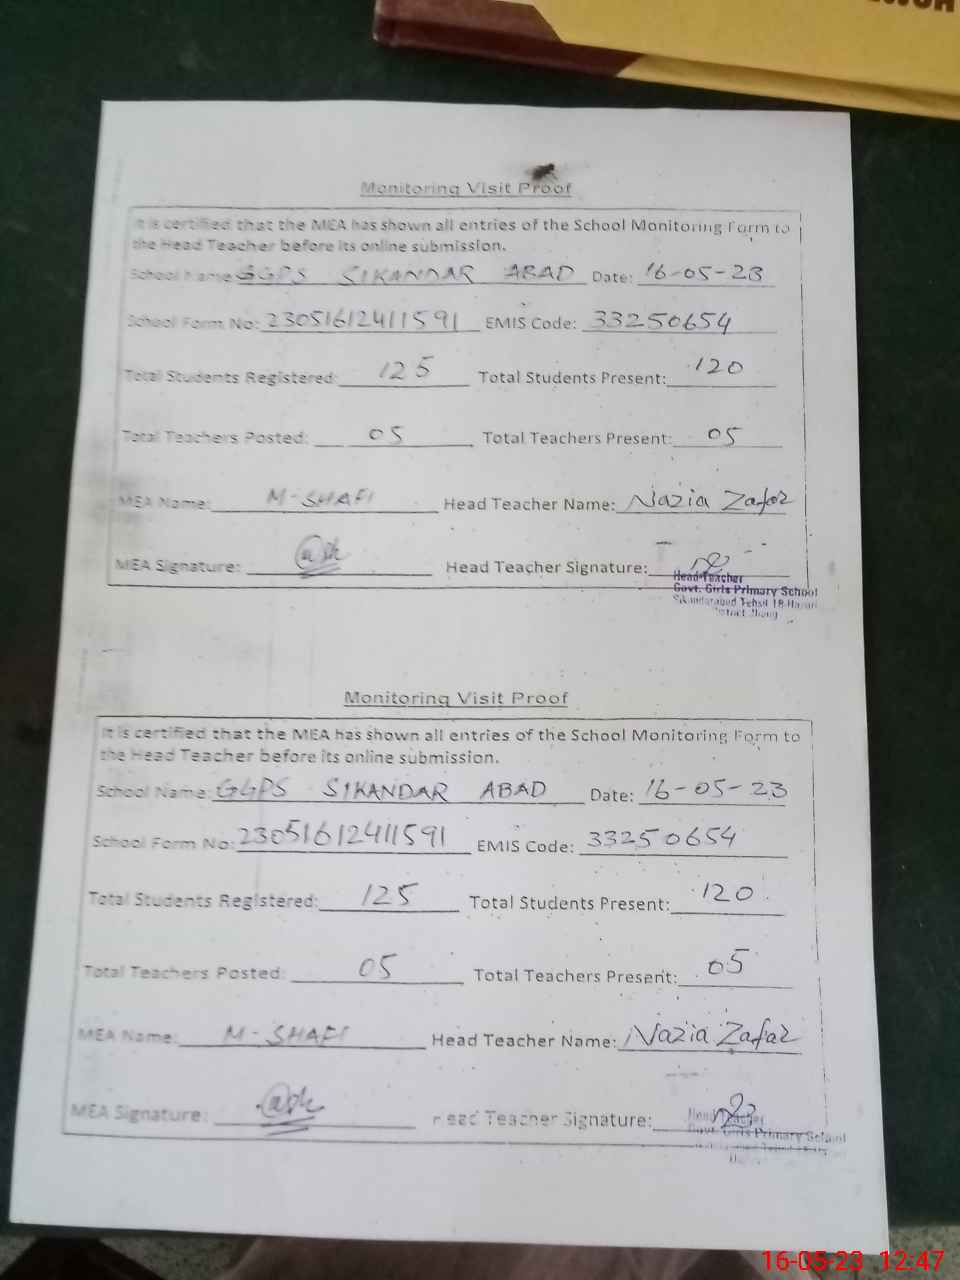 Monitoring Visit Proof
It is certified that the MEA has shown all entries of the School Monitoring Form to
the Head Teacher before its online submission.
School Name: GGPS SIKANDAR ABAD Date: 16-05-23
School Form No: 23051612411591 EMIS Code: 33250654
Total Students Registered: 125 Total Students Present: 120
Total Teachers Posted: 05 Total Teachers Present: 05
MEA Name: M-SHAFI Head Teacher Name: Nazia Zafar
MEA Signature: Head Teacher Signature:
Head Teacher
Govt. Girls Primary School
Sikandarabad Tehsil 18-Hazari
District Jhang
Monitoring Visit Proof
It is certified that the MEA has shown all entries of the School Monitoring Form to
the Head Teacher before its online submission.
School Name: GGPS SIKANDAR ABAD Date: 16-05-23
School Form No: 23051612411591 EMIS Code: 33250654
Total Students Registered: 125 Total Students Present: 120
Total Teachers Posted: 05 Total Teachers Present: 05
MEA Name: M-SHAFI Head Teacher Name: Nazia Zafar
MEA Signature: Head Teacher Signature:
Head Teacher
Govt. Girls Primary School
16-05-23 12:47